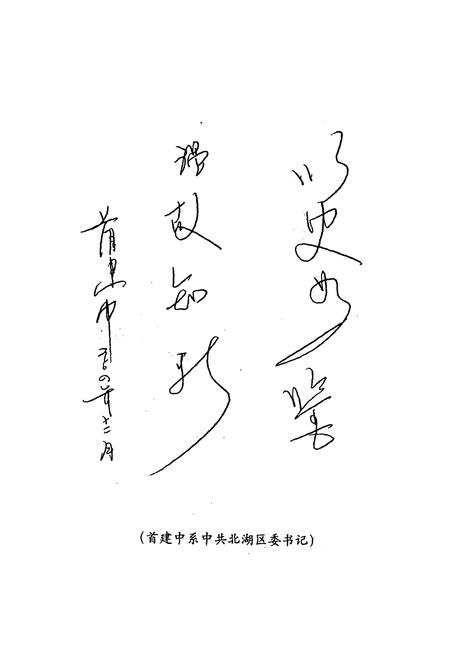 以史为鉴
温故知新
首建中二〇〇〇年十二月
(首建中系中共北湖区委书记)